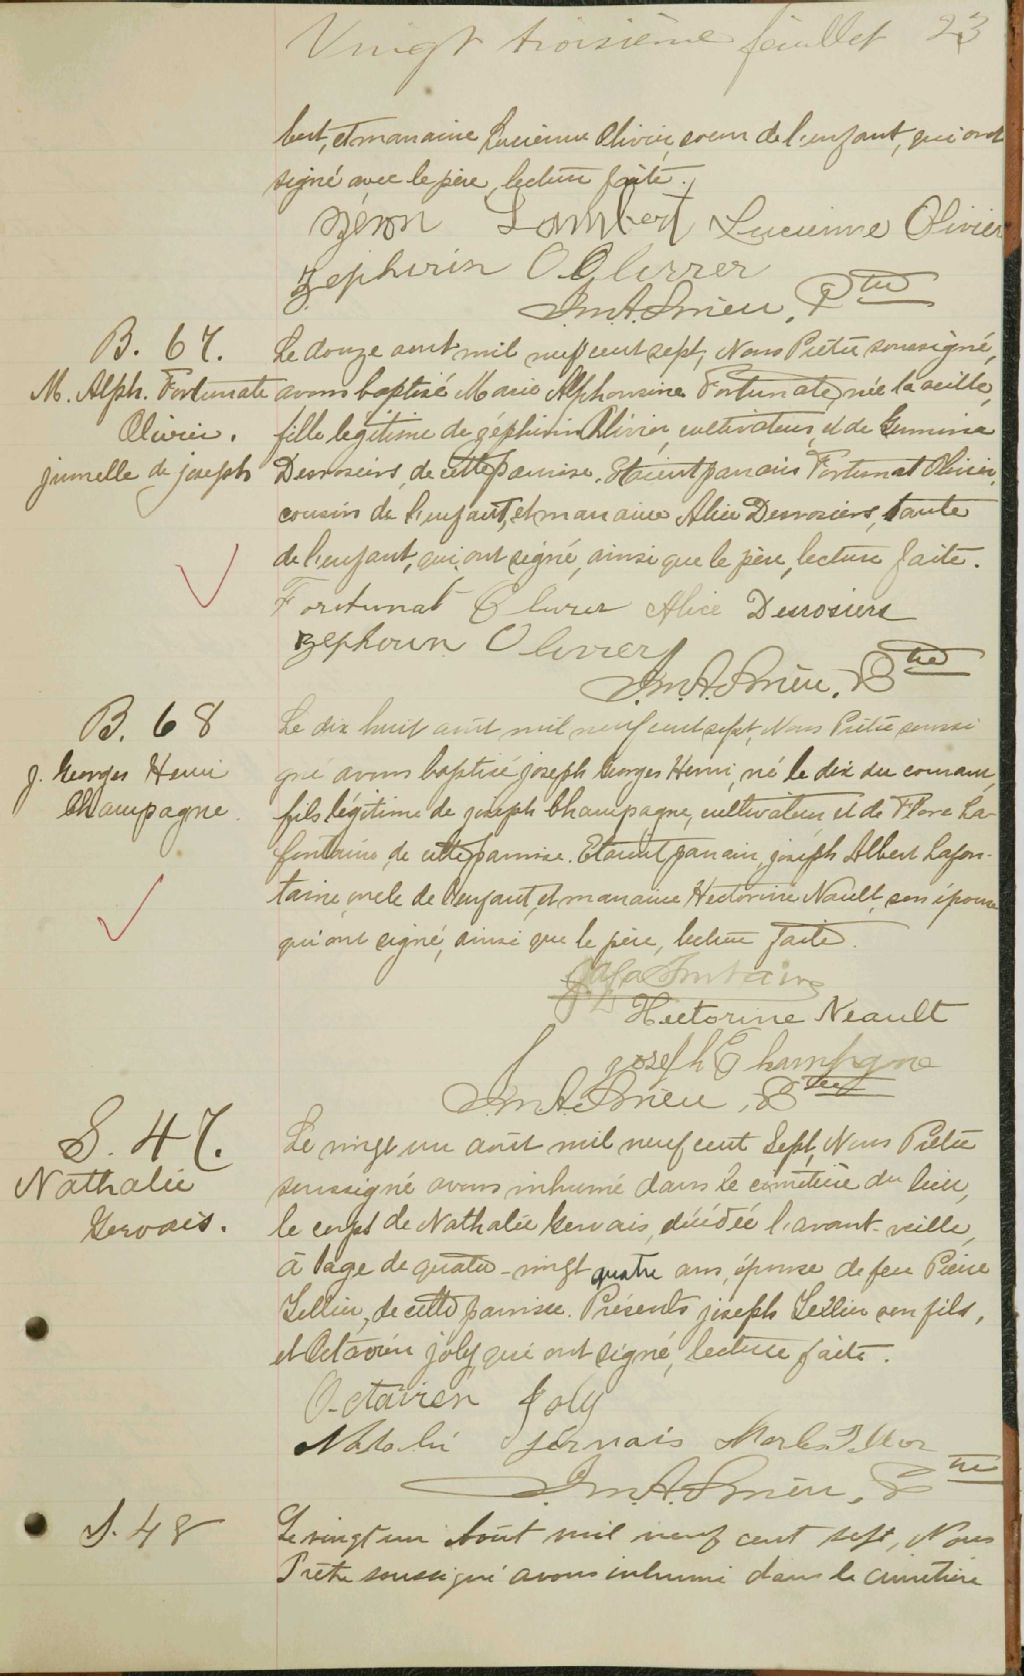 Vingt troisième feuillet 23
bert, et marraine Lucienne Olivier, soeur de l'enfant, qui ont
signé avec le père, lecture faite.
Lambert Lucienne Olivier
Zephirin Olivier
Ptre
B. 67.
Le douze août mil neuf cent sept, Nous Prêtre soussigné,
M. Alph. Fortunate
avons baptisé Marie Alphonsine Fortunate, née la veille,
Olivier.
fille légitime de Zéphirin Olivier, cultivateur, et de
jumelle de joseph
Desrosiers, de cette paroisse. Etaient parrain Fortunat Olivier,
cousin de l'enfant, et marraine Alice Desrosiers, tante
de l'enfant, qui ont signé, ainsi que le père, lecture faite.
Fortunat Olivier Alice Desrosiers
Zephirin Olivier
Ptre
B. 68
Le dix huit août mil neuf cent sept, Nous Prêtre soussi
j. Georges Henri
gné avons baptisé joseph Georges Henri, né le dix du courant,
Champagne.
fils légitime de joseph Champagne, cultivateur et de Flore La-
fontaine, de cette paroisse. Etaient parrain, joseph Albert Lafon-
taine, oncle de l'enfant, et marraine Hectorine Nault, son épouse
qui ont signé, ainsi que le père, lecture faite.
Lafontaine
Hectorine Neault
Joseph Champagne
Ptre
S. 47.
Le vingt un août mil neuf cent Sept, Nous Prêtre
Nathalie
soussigné avons inhumé dans le cimetière du lieu,
Gervais.
le corps de Nathalie Gervais, décédée l'avant-veille,
à l'age de quatre-vingt quatre ans, épouse de feu Pierre
Tellier, de cette paroisse. Présents joseph Tellier son fils,
et Octavien joly, qui ont signé, lecture faite.
Octavien Joly
Natali Jervais
Ptre
S. 48
Le vingt un août mil neuf cent sept, Nous
Prêtre soussigné avons inhumé dans le cimetière